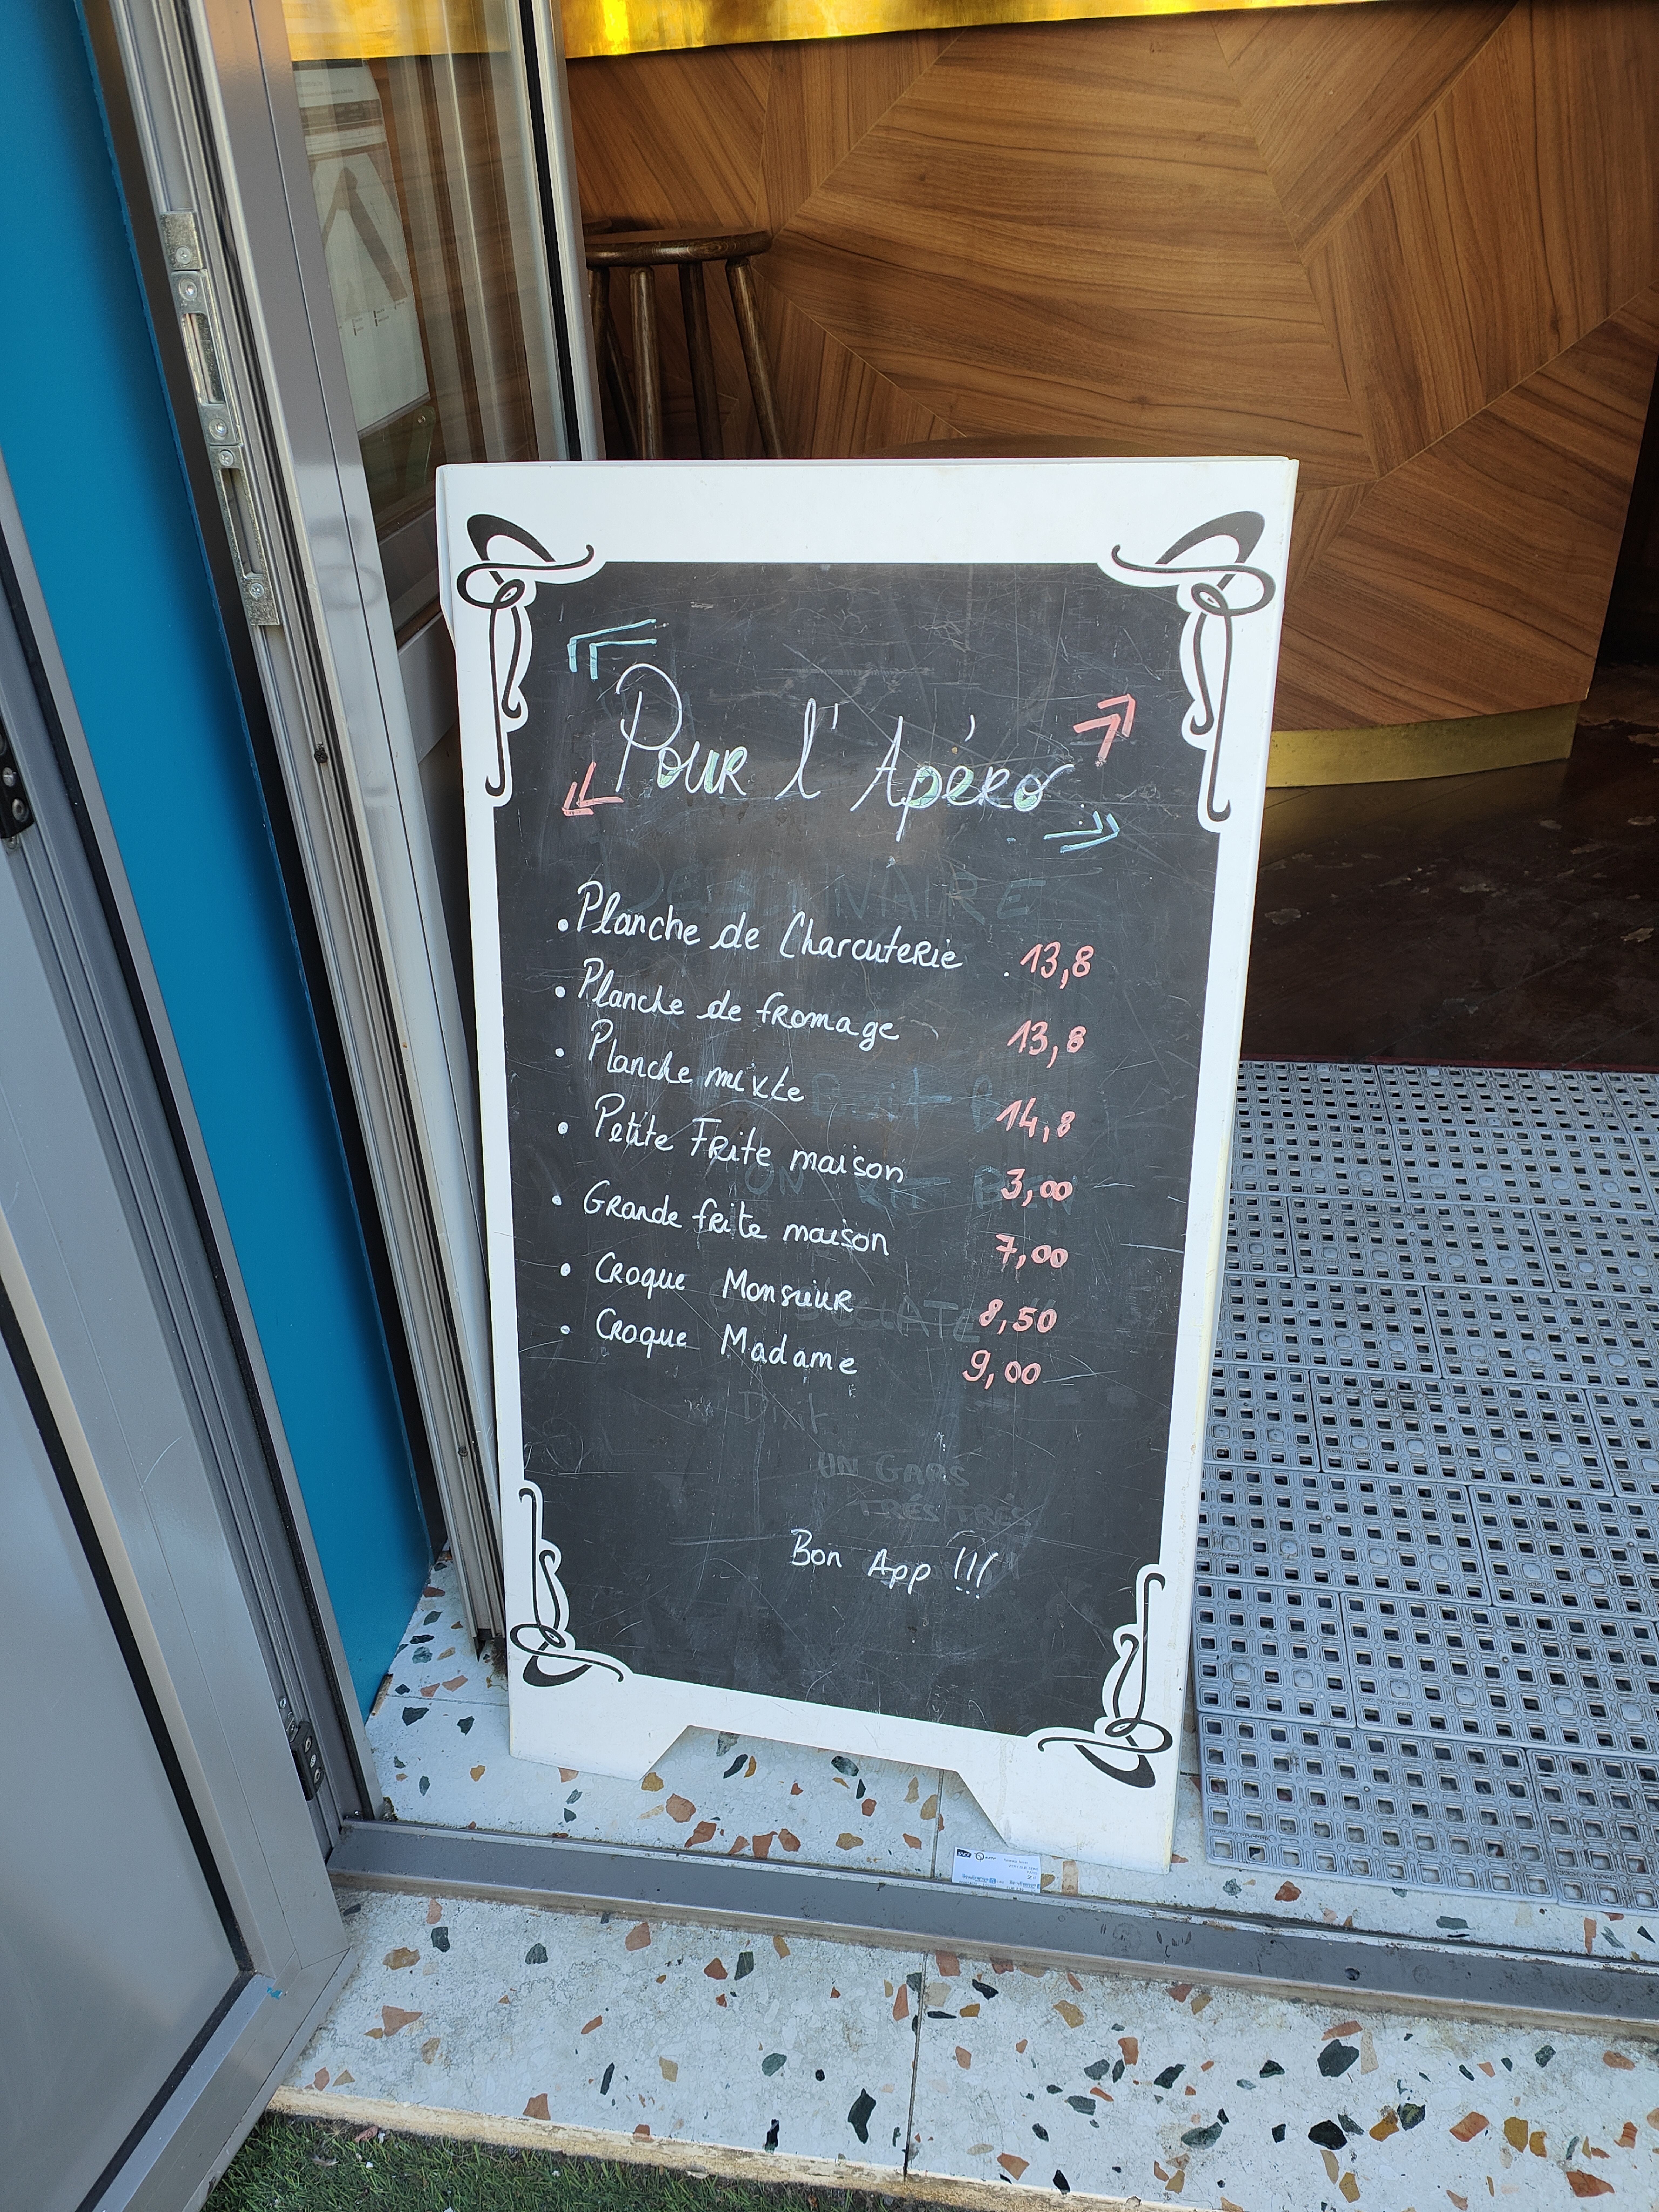 Pour l'Apéro
• Planche de Charcuterie 13,8
• Planche de fromage 13,8
• Planche mixte 14,8
• Petite Frite maison 3,00
• Grande frite maison 7,00
• Croque Monsieur 8,50
• Croque Madame 9,00
UN GARS
TRÉS TRÉS
Bon App !!!